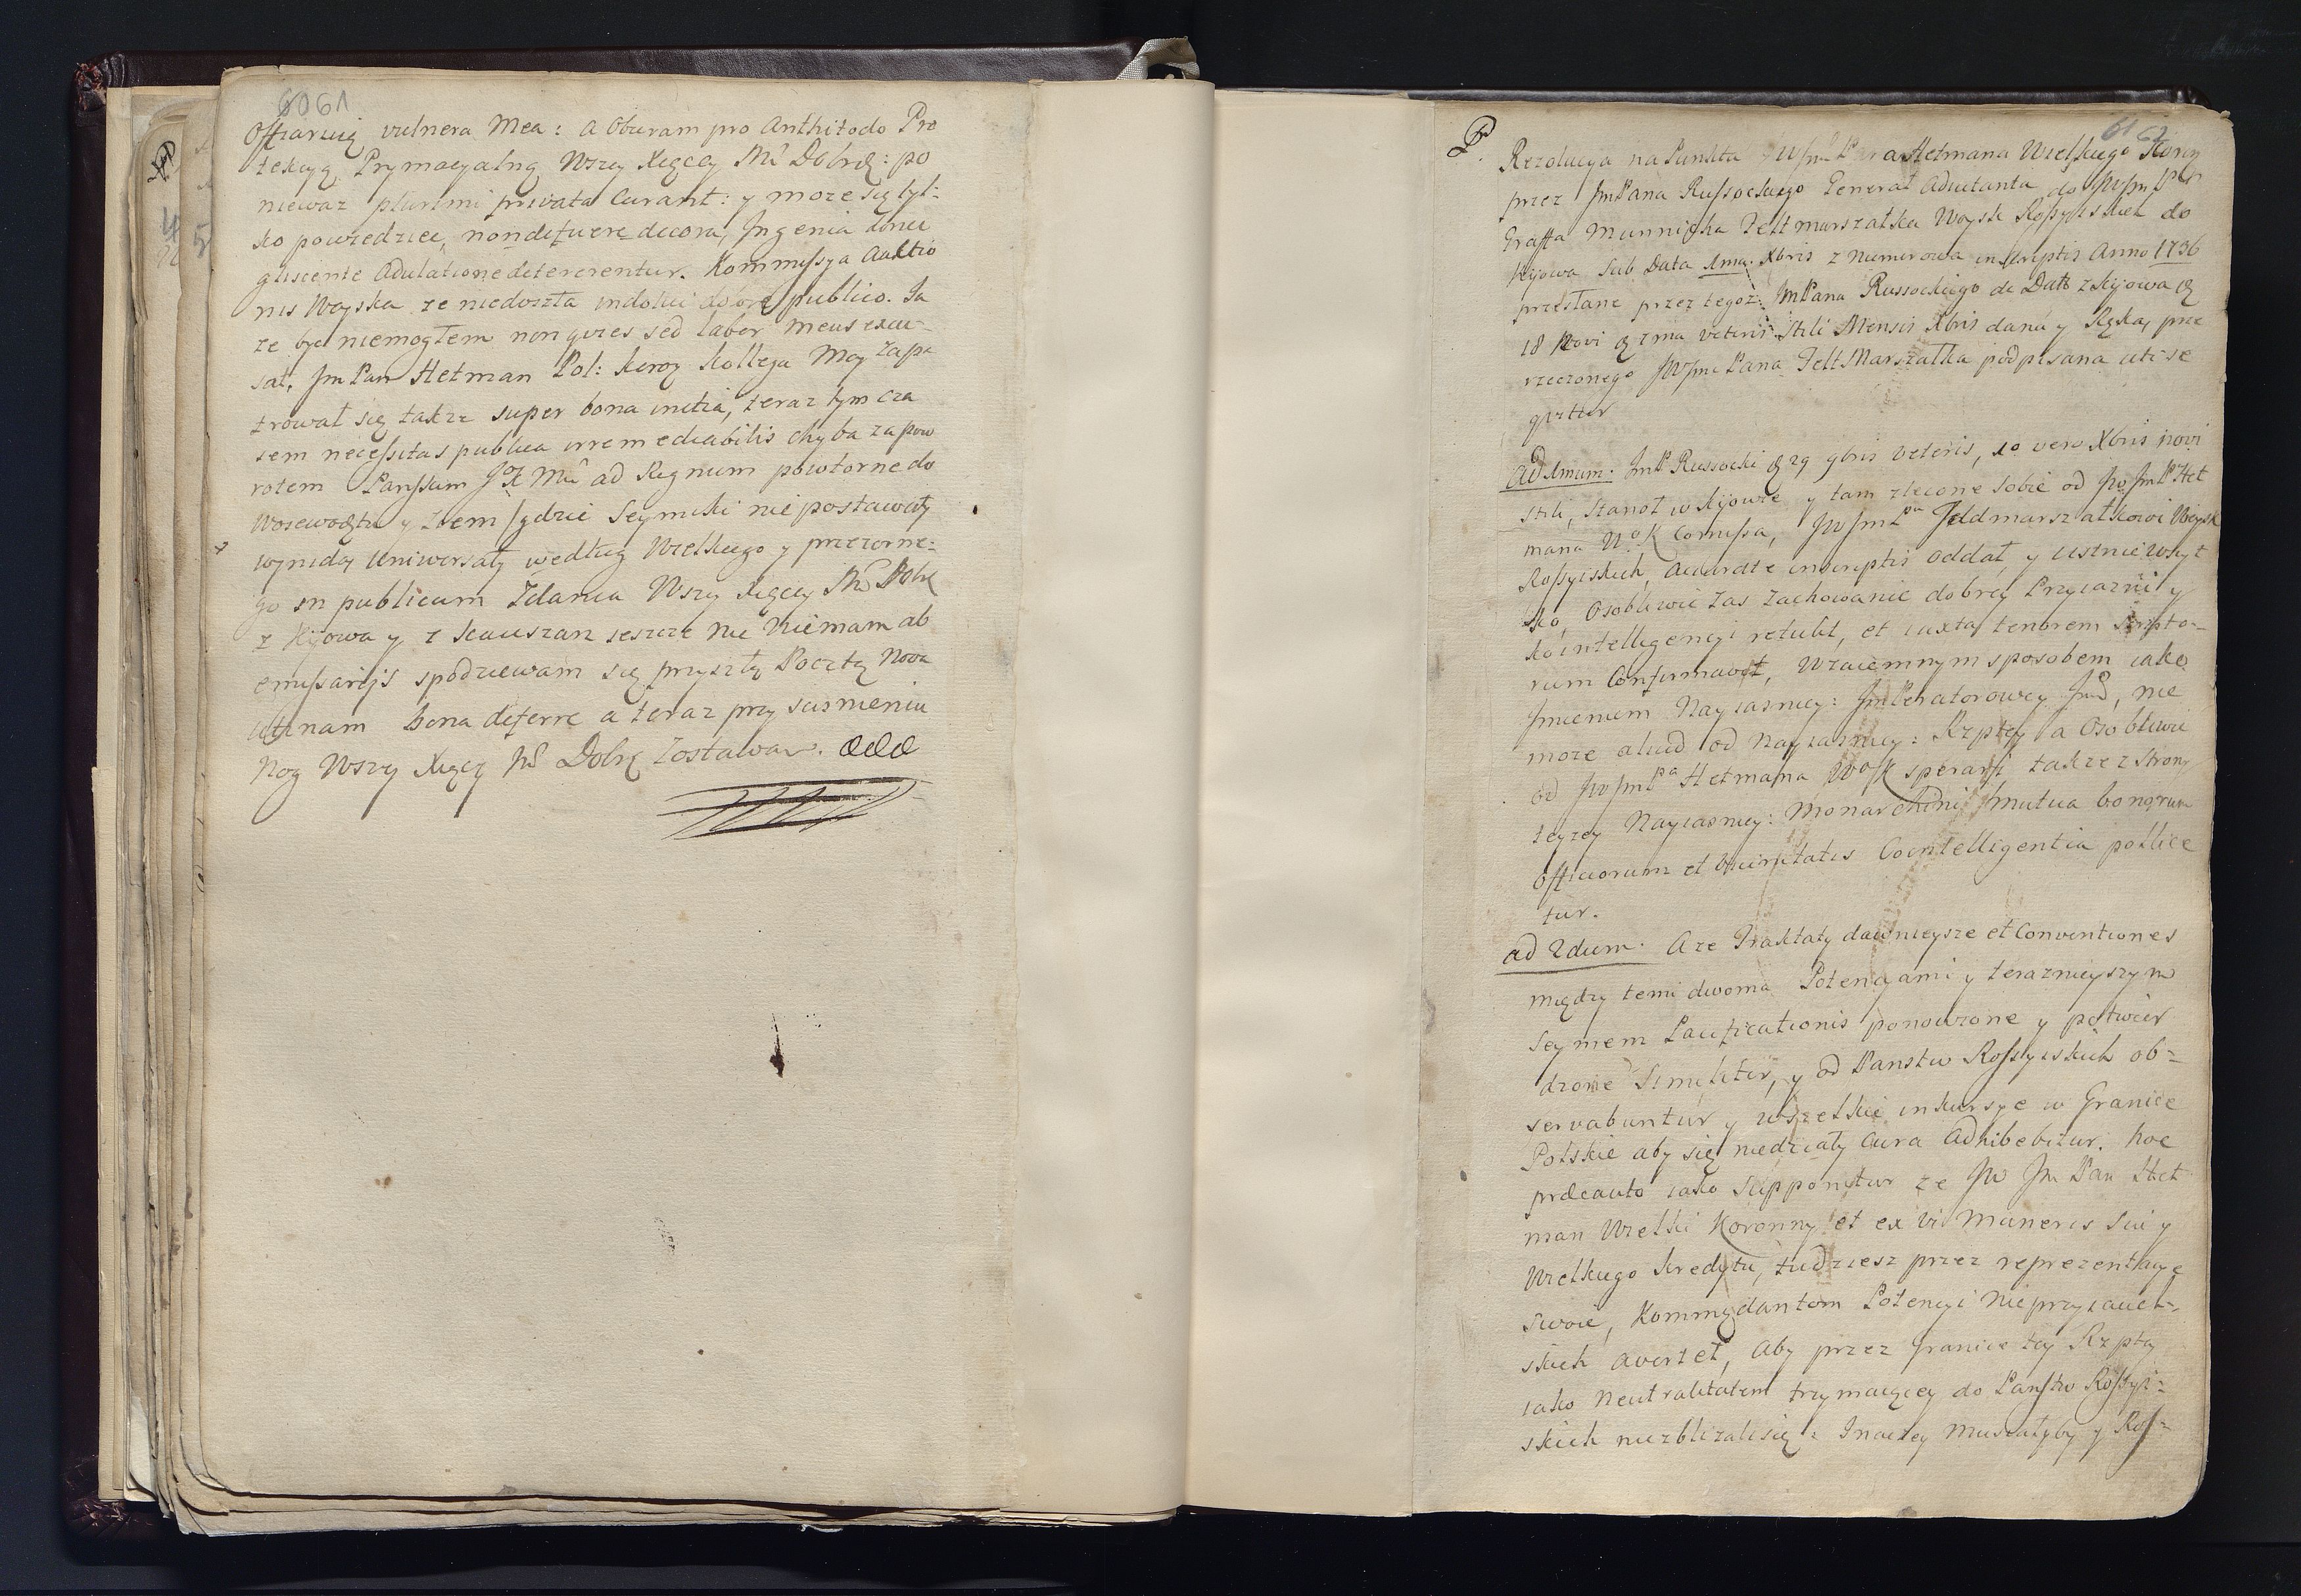 6061
Offiaruią vulnera Mea: a Obieram pro Anthitodo Pro
tekcyą Prymacyalną Wszey Xięcey Mci Dobrą: po
niewaz plurimi privata Curant: y moze się tyl:
ko powiedziec, non defuere decora Ingenia donec
gliscente Adulatione detererentur. Kommissya Auktio
nis Woyska ze niedoszła indolui dobre publico. Ja
ze byc niemogłem non quies sed labor meus excu-
sat. Jm Pan Hetman Pol: koroy kollega Moy Zapa
trował się takze super bona initia, teraz tym cza
sem necessitas publica irremediabilis chyba za pow
rotem Panskim JoK Mci ad Regnum powtorne do
Woiewodztw y Ziem /gdzie Seymiki nie postawały
wynidą Uniwersały według Wielkiego y przezorne:
go in publicum Zdania Wszey Xięcey Mci Dobr
z Kijowa y z Kauszan ieszcze nic niemam ab
emissarijs spodziewam się przyszłą Pocztą Nova
utinam bona deferre a teraz przy scismieniu
Nog Wszey Xięcey Mci Dobr Zostawam.
61 62
Rezolucya na Punkta JWJm Pana Hetmana Wielkiego Koron
przez Jm Pana Russockiego General Adiutanta do JWJm Pa
Graffa Munnicha Feltmarszałka Woysk Rossyiskich do
Kijowa Sub Data 1ma Xbris z Numerowa in scriptis Anno 1736
przesłane przez tegoz Jm Pana Russockiego de Dato z Kijowa
18 Novi 7ma veteris Stili Mensis Xbris dana y Ręką prze
rzeczonego JWJm Pana Felt Marszałka podpisana uti se
quitur
Ad 1mum. Jm P Russocki 29 9bris veteris, 10 vero Xbris novi
stili, Stanoł w Kijowie y tam zlecone Sobie od JWJm P Het
mana W K Comissa, JWJm Pu Feldmarszałkowi Woysk
Rossyiskich, accurate in scriptis Oddał, y ustnie wszyt
ko, Osobliwie Zas Zachowanie dobrey Przyiazni y
kointelligencyi retulit, et iuxta tenorem scripto-
rum Confirmavit, Wzaiemnym sposobem iako
Jmieniem Nayiasniey: Jmperatorowey Jmci, nie
moze aliud od Nayiasniey: Rzptey a Osobliwie
od JWJm Pa Hetmana W K sperari, takze z strony
teyzey Nayiasniey: Monarchini mutua bonorum
Officiorum et Cointelligentia pollice
tur.
ad 2dum. A ze Traktaty dawnieysze et Conventiones
między temi dwoma Potencyami y terazniejszym
Seymem Pacificationis ponowione y potwier
dzone Similiter, y od Panstw Rossyiskich ob-
servabuntur y wszelkie inkursye w Granice
Polskie aby się niedziały cura Adhibebitur. hoc
praecauto iako Supponitur ze JW Jm Pan Het
man Wielki Koronny et ex vi Muneris Sui y
Wielkiego kredytu, tudziesz przez reprezentacye
swoie, Kommendantom Potencyi Nieprzyiaciel-
skich avertet, Aby przez Granice tey Rzptey
iako Neutralitatem trzymaiącey do Panstw Rossyi:
skich niezblizali się: Inaczey musiałyby y Ros-